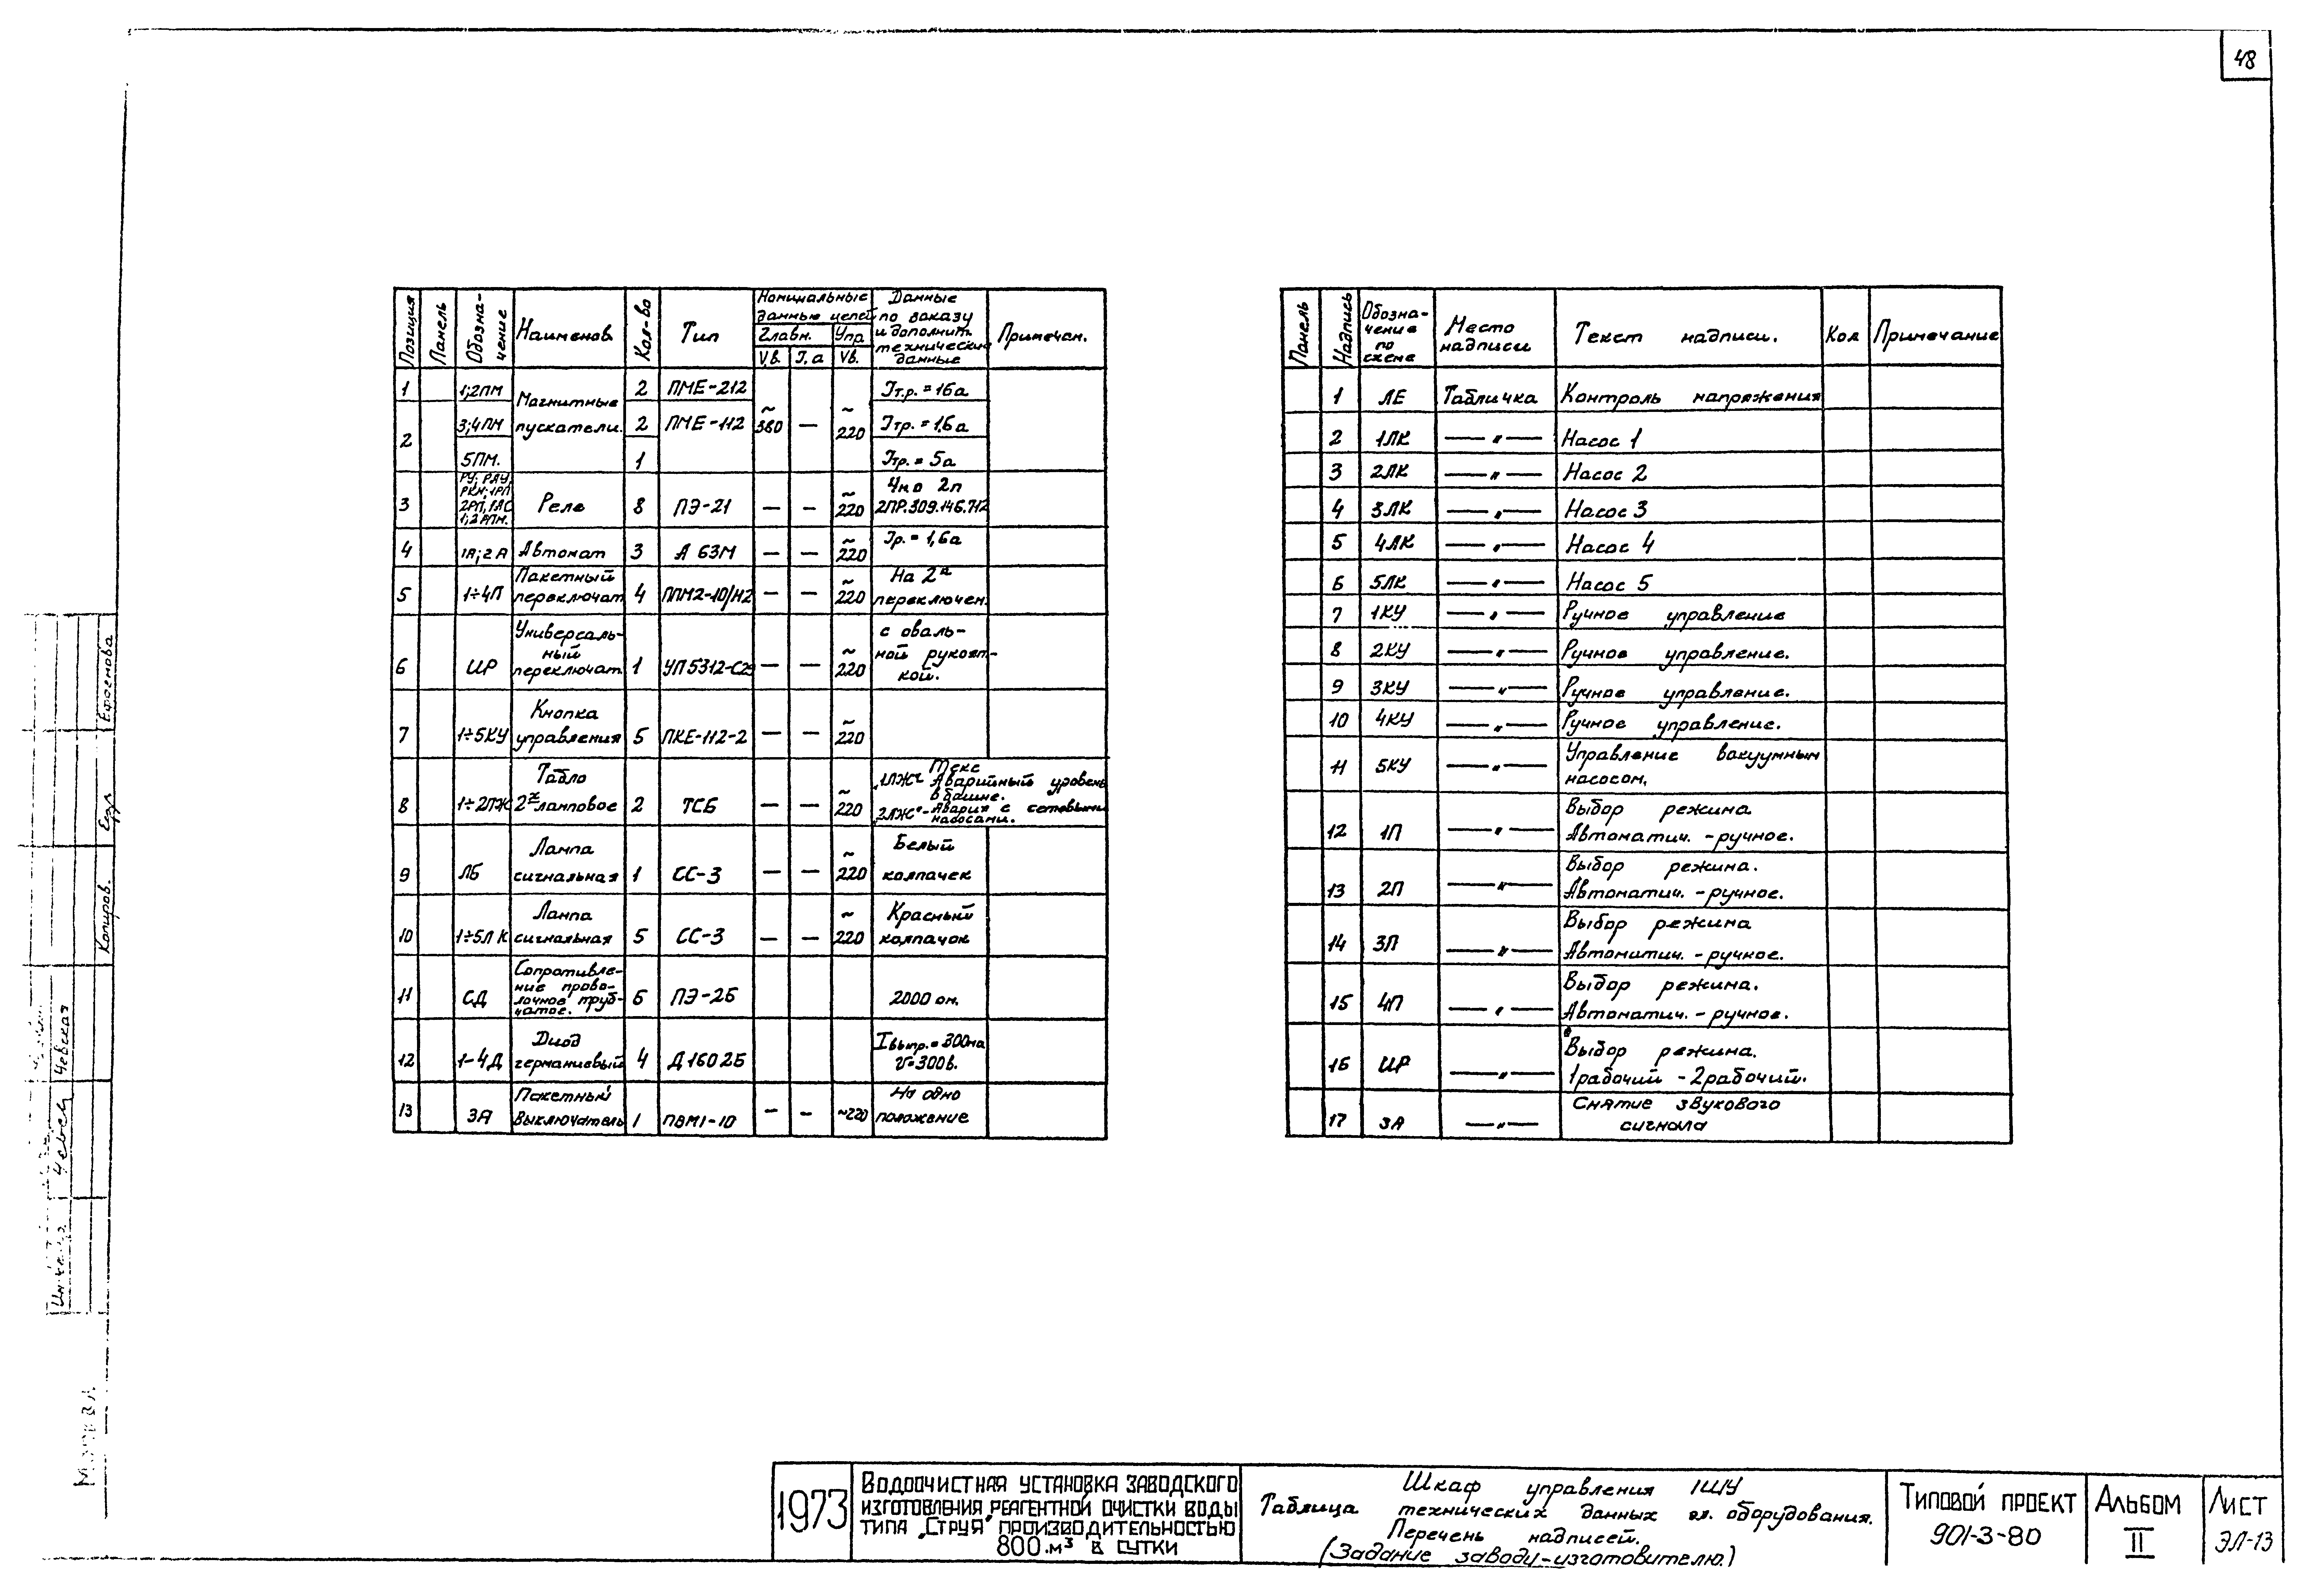 48
Позиция Панель Обозна-чение Наименов. Кол-во Тип Номинальные данные цепей Главн. V,в. I,а Упр Vв. Данные по заказу и дополнит. технические данные Примечан.
1 1;2ПМ Магнитные пускатели. 2 ПМЕ-212 ~380 — ~220 Iт.р.=16а
2 3;4ПМ 2 ПМЕ-112 Iтр.=1,6а
5ПМ. 1 Iтр.=5а
3 РУ; РАУ, РКН; 1РП 2РП, РАС 1;2РПН. Реле 8 ПЭ-21 — — ~220 4но 2п 2ПР.309.146.742
4 1А;2А Автомат 3 А 63М — — ~220 Iр.=1,6а
5 1÷4П Пакетный переключат. 4 ППМ2-10/Н2 — — ~220 На 2а переключен.
6 ИР Универсаль-ный переключат. 1 УП5312-С29 — — ~220 с оваль-ной рукоят-кой.
7 1÷5КУ Кнопка управления 5 ПКЕ-112-2 — — ~220
8 1÷2ЛЖ Табло 2х ламповое 2 ТСБ — — ~220 Текс „1ЛЖ“ Аварийный уровень в башне. „2ЛЖ“-Авария с сетевыми насосами.
9 ЛБ Лампа сигнальная 1 СС-3 — — ~220 Белый колпачек
10 1÷5ЛК Лампа сигнальная 5 СС-3 — — ~220 Красный колпачок
11 СД Сопротивле-ние прово-лочное труб-чатое. 6 ПЭ-25 2000 ом.
12 1-4Д Диод германиевый 4 Д1602Б Iвыпр.=300ма V=300в.
13 3А Пакетный выключатель 1 ПВМ1-10 — — ~220 На одно положение
Панель Надпись Обозна-чение по схеме Место надписи Текст надписи. Кол Примечание
1 ЛБ Табличка Контроль напряжения
2 1ЛК —„— Насос 1
3 2ЛК —„— Насос 2
4 3ЛК —„— Насос 3
5 4ЛК —„— Насос 4
6 5ЛК —„— Насос 5
7 1КУ —„— Ручное управление
8 2КУ —„— Ручное управление.
9 3КУ —„— Ручное управление.
10 4КУ —„— Ручное управление.
11 5КУ —„— Управление вакуумным насосом.
12 1П —„— Выбор режима Автоматич.-ручное.
13 2П —„— Выбор режима. Автоматич.-ручное.
14 3П —„— Выбор режима Автоматич.-ручное.
15 4П —„— Выбор режима. Автоматич.-ручное.
16 ИР —„— Выбор режима. 1рабочий-2рабочий.
17 3А —„— Снятие звукового сигнала
Ефогнова
Копиров.
Чевская
1973
Водоочистная установка заводского
изготовления реагентной очистки воды
типа „Струя“ производительностью
800 м³ в сутки
Шкаф управления 1ШУ
Таблица технических данных эл. оборудования.
Перечень надписей.
(Задание заводу-изготовителю.)
Типовой проект
901-3-80
Альбом
II
Лист
ЭЛ-13